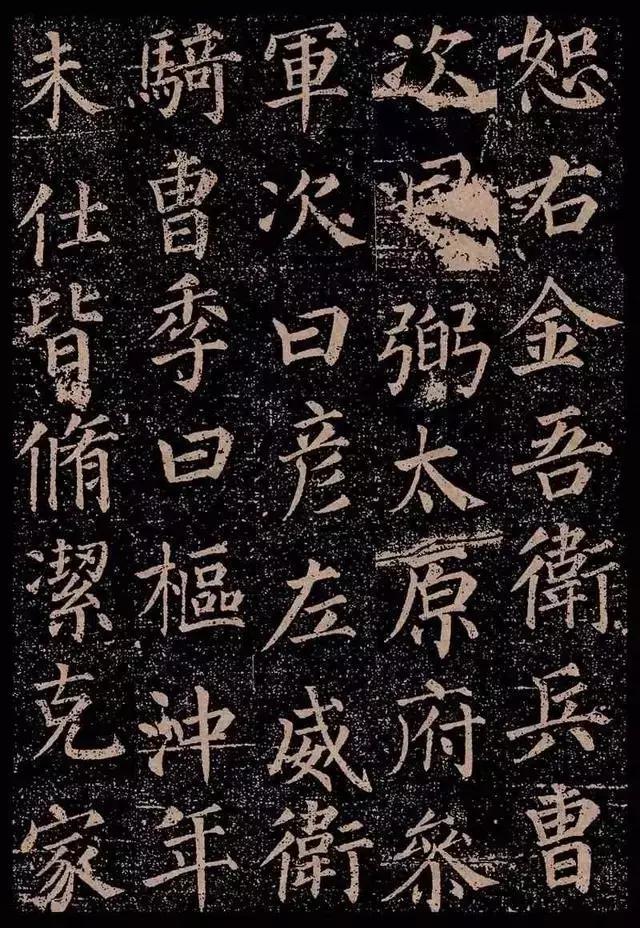 恕右金吾衛兵曹
次曰弼太原府叅
軍次曰彦左威衛
騎曹季曰樞沖年
未仕皆脩潔克家